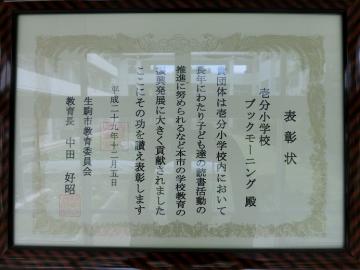 表彰状
壱分小学校
ブックモーニング 殿
貴団体は壱分小学校内において
長年にわたり子ども達の読書活動の
推進に努められるなど本市の学校教育の
振興発展に大きく貢献されました
ここにその功を讃え表彰します
平成二十九年十二月五日
生駒市教育委員会
教育長 中田 好昭